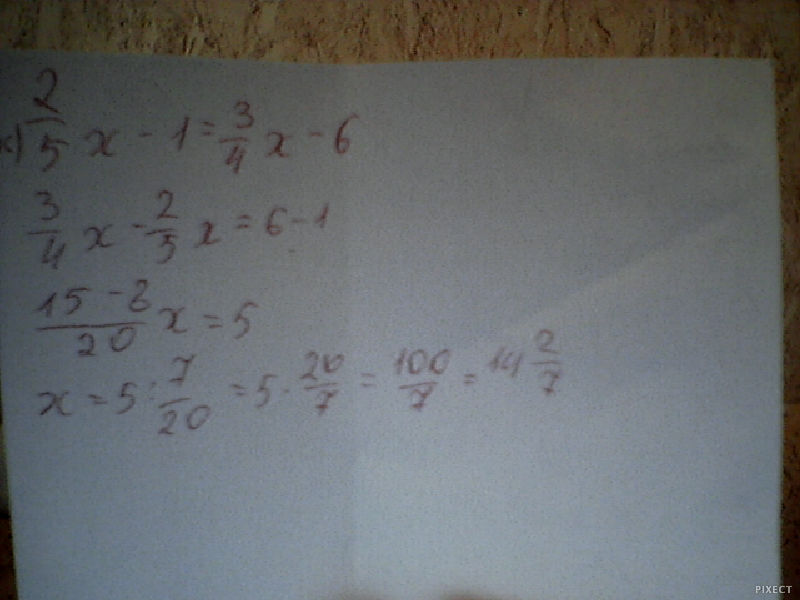 к) 2/5 x - 1 = 3/4 x - 6
3/4 x - 2/5 x = 6 - 1
15 - 8/20 x = 5
x = 5 : 7/20 = 5 · 20/7 = 100/7 = 14 2/7
PIXECT